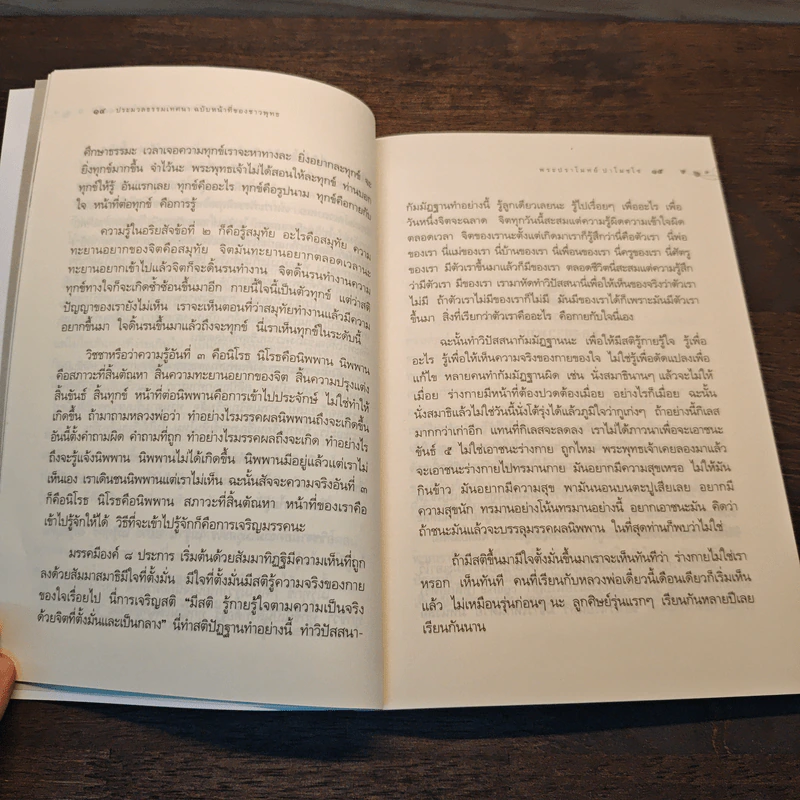 ๑๔ ประมวลธรรมเทศนา ฉบับหน้าที่ของชาวพุทธ
ศึกษาธรรมะ เวลาเจอความทุกข์เราจะหาทางละ ยิ่งอยากละทุกข์ จะ
ยิ่งทุกข์มากขึ้น จำไว้นะ พระพุทธเจ้าไม่ได้สอนให้ละทุกข์ ท่านบอก
ทุกข์ให้รู้ อันแรกเลย ทุกข์คืออะไร ทุกข์คือรูปนาม ทุกข์คือกายกับ
ใจ หน้าที่ต่อทุกข์ คือการรู้
ความรู้ในอริยสัจข้อที่ ๒ ก็คือรู้สมุทัย อะไรคือสมุทัย ความ
ทะยานอยากของจิตคือสมุทัย จิตมันทะยานอยากตลอดเวลานะ
ทะยานอยากเข้าไปแล้วจิตก็จะดิ้นรนทำงาน จิตดิ้นรนทำงานความ
ทุกข์ทางใจก็จะเกิดซ้ำซ้อนขึ้นมาอีก กายนี้ใจนี้เป็นตัวทุกข์ แต่ว่าสติ
ปัญญาของเรายังไม่เห็น เราจะเห็นตอนที่ว่าสมุทัยทำงานแล้วมีความ
อยากขึ้นมา ใจดิ้นรนขึ้นมาแล้วถึงจะทุกข์ นี่เราเห็นทุกข์ในระดับนี้
วิชชาหรือว่าความรู้อันที่ ๓ คือนิโรธ นิโรธคือนิพพาน นิพพาน
คือสภาวะที่สิ้นตัณหา สิ้นความทะยานอยากของจิต สิ้นความปรุงแต่ง
สิ้นขันธ์ สิ้นทุกข์ หน้าที่ต่อนิพพานคือการเข้าไปประจักษ์ ไม่ใช่ทำให้
เกิดขึ้น ถ้ามาถามหลวงพ่อว่า ทำอย่างไรมรรคผลนิพพานถึงจะเกิดขึ้น
อันนี้ตั้งคำถามผิด คำถามที่ถูก ทำอย่างไรมรรคผลถึงจะเกิด ทำอย่างไร
ถึงจะรู้แจ้งนิพพาน นิพพานไม่ได้เกิดขึ้น นิพพานมีอยู่แล้วแต่เราไม่
เห็นเอง เราเดินชนนิพพานแต่เราไม่เห็น ฉะนั้นสัจจะความจริงอันที่ ๓
ก็คือนิโรธ นิโรธคือนิพพาน สภาวะที่สิ้นตัณหา หน้าที่ของเราคือ
เข้าไปรู้จักให้ได้ วิธีที่จะเข้าไปรู้จักก็คือการเจริญมรรคนะ
มรรคมีองค์ ๘ ประการ เริ่มต้นด้วยสัมมาทิฏฐิมีความเห็นที่ถูก
ลงด้วยสัมมาสมาธิมีใจที่ตั้งมั่น มีใจที่ตั้งมั่นมีสติรู้ความจริงของกาย
ของใจเรื่อยไป นี่การเจริญสติ “มีสติ รู้กายรู้ใจตามความเป็นจริง
ด้วยจิตที่ตั้งมั่นและเป็นกลาง” นี่ทำสติปัฏฐานทำอย่างนี้ ทำวิปัสสนา-
พระปราโมทย์ ปาโมชฺโช ๑๕
กัมมัฏฐานทำอย่างนี้ รู้ลูกเดียวเลยนะ รู้ไปเรื่อยๆ เพื่ออะไร เพื่อ
วันหนึ่งจิตจะฉลาด จิตทุกวันนี้สะสมแต่ความรู้ผิดความเข้าใจผิด
ตลอดเวลา จิตของเรานะตั้งแต่เกิดมาเราก็รู้สึกว่านี่คือตัวเรา นี่พ่อ
ของเรา นี่แม่ของเรา นี่บ้านของเรา นี่เพื่อนของเรา นี่ครูของเรา นี่ศัตรู
ของเรา มีตัวเราขึ้นมาแล้วก็มีของเรา ตลอดชีวิตนี่สะสมแต่ความรู้สึก
ว่ามีตัวเรา มีของเรา เรามาหัดทำวิปัสสนานี่เพื่อให้เห็นของจริงว่าตัวเรา
ไม่มี ถ้าตัวเราไม่มีของเราก็ไม่มี มันมีของเราได้ก็เพราะมันมีตัวเรา
ขึ้นมา สิ่งที่เรียกว่าตัวเราคืออะไร คือกายกับใจนี่เอง
ฉะนั้นทำวิปัสสนากัมมัฏฐานนะ เพื่อให้มีสติรู้กายรู้ใจ รู้เพื่อ
อะไร รู้เพื่อให้เห็นความจริงของกายของใจ ไม่ใช่รู้เพื่อดัดแปลงเพื่อ
แก้ไข หลายคนทำกัมมัฏฐานผิด เช่น นั่งสมาธินานๆ แล้วจะไม่ให้
เมื่อย ร่างกายมีหน้าที่ต้องปวดต้องเมื่อย อย่างไรก็เมื่อย ฉะนั้น
นั่งสมาธิแล้วไม่ใช่วันนี้นั่งโต้รุ่งได้แล้วภูมิใจว่ากูเก่งๆ ถ้าอย่างนี้กิเลส
มากกว่าเก่าอีก แทนที่กิเลสจะลดลง เราไม่ได้ภาวนาเพื่อจะเอาชนะ
ขันธ์ ๕ ไม่ใช่เอาชนะร่างกาย ถูกไหม พระพุทธเจ้าเคยลองมาแล้ว
จะเอาชนะร่างกายไปทรมานกาย มันอยากมีความสุขเหรอ ไม่ให้มัน
กินข้าว มันอยากมีความสุข พามันนอนบนตะปูเสียเลย อยากมี
ความสุขนัก ทรมานอย่างโน้นทรมานอย่างนี้ อยากเอาชนะมัน คิดว่า
ถ้าชนะมันแล้วจะบรรลุมรรคผลนิพพาน ในที่สุดท่านก็พบว่าไม่ใช่
ถ้ามีสติขึ้นมามีใจตั้งมั่นขึ้นมาเราจะเห็นทันทีว่า ร่างกายไม่ใช่เรา
หรอก เห็นทันที คนที่เรียนกับหลวงพ่อเดี๋ยวนี้เดือนเดียวก็เริ่มเห็น
แล้ว ไม่เหมือนรุ่นก่อนๆ นะ ลูกศิษย์รุ่นแรกๆ เรียนกันหลายปีเลย
เรียนกันนาน